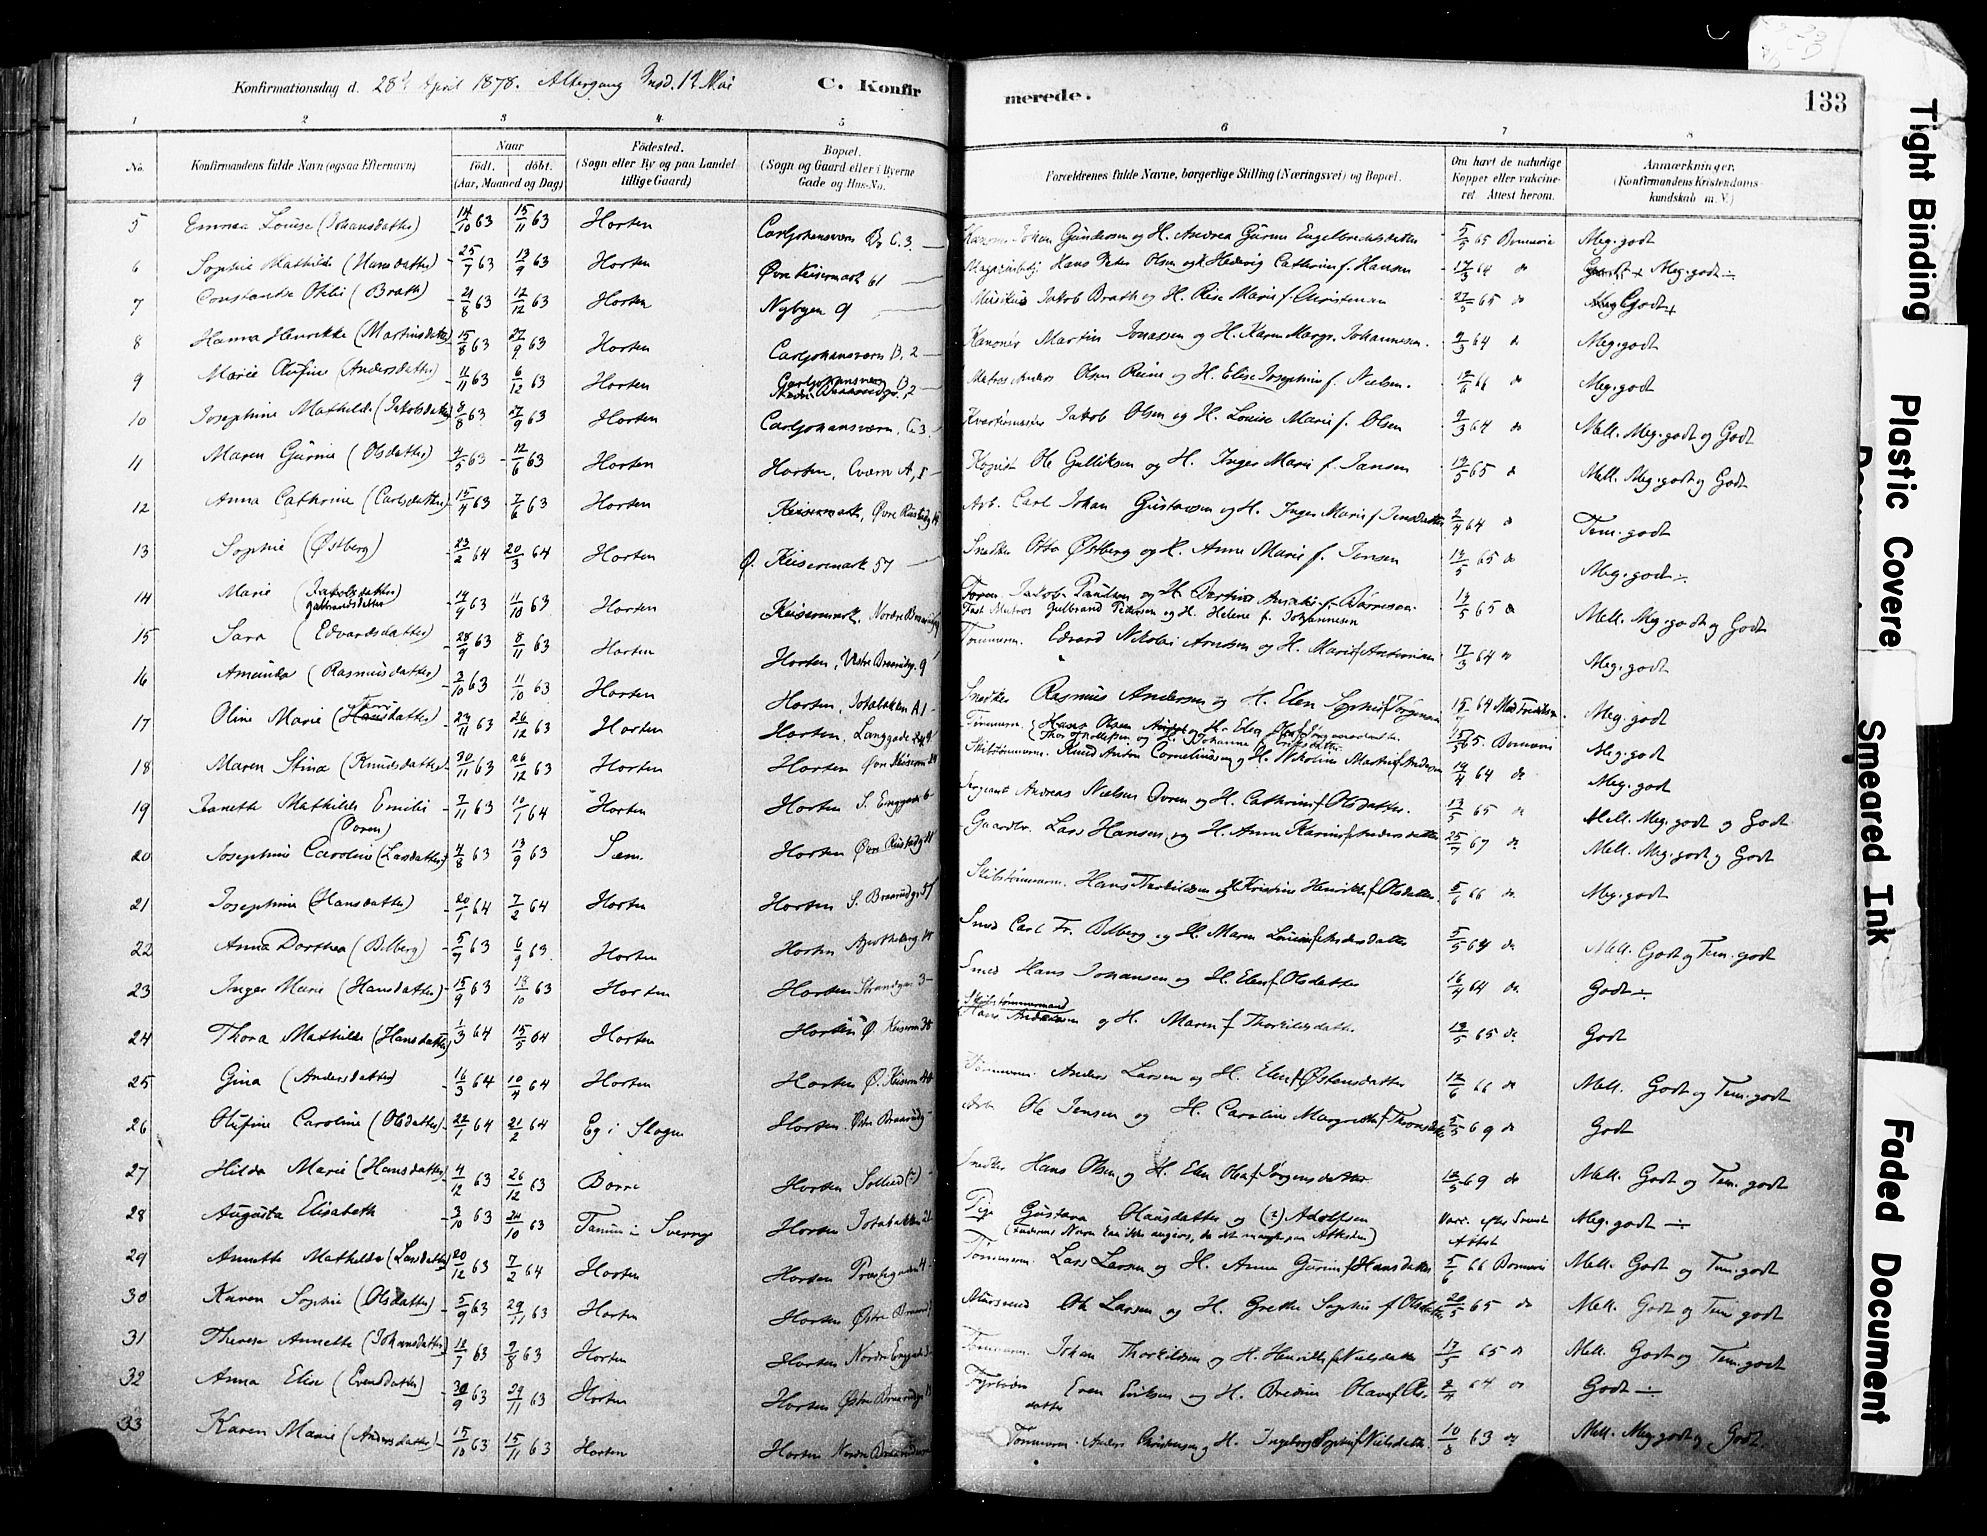 Konfirmationsdag d. 28de April 1878. Altergang Onsd. 1 Mai C. Konfirmerede. 133
1 2 3 4 5 6 7 8
No. Konfirmandens fulde Navn (ogsaa Efternavn) Naar født. døbt. (Aar, Maaned og Dag) Fødested. (Sogn eller By og paa Landet tillige Gaard) Bopæl. (Sogn og Gaard eller i Byerne Gade og Hus-No. Forældrenes fulde Navne, borgerlige Stilling (Næringsvei) og Bopæl. Om havt de naturlige Kopper eller vaccineret. Attest herom. Anmærkninger. (Konfirmandens Kristendomskundskab m. V.)
5 Emma Louise (Johansdatter) 14/10 63 15/11 63 Horten Carljohansværn B. C. 3 Johan Gundersen og H. Andrea Gurine Engelbrechtsdatter 5/5 65 Bomerie Meg. godt
6 Sophie Mathilde (Hansdatter) 25/7 63 13/9 63 Horten Øvre Keisemark 61 Hans Peter Olsen og H. Hedevig Cathrine f. Hansen 17/3 64 do Meg. godt
7 Constance Otilie (Brath) 21/8 63 12/12 63 Horten Nybyen 9 Musikus Jakob Brath og H. Rise Marie f. Christensen 27/5 65 do Godt
8 Hanna Henrikke (Martinsdatter) 15/8 63 27/9 63 Horten Carljohansværn B. 2 Kanonér Martin Jonassen og H. Karen Margr. Johannesen. 2/3 64 do Meg. godt
9 Marie Olufine (Andersdatter) 11/11 63 6/12 63 Horten Carljohansværn B. 2 Matros Anders Olsen Reine og H. Elise Josephine f. Nielsen. 12/6 66 do Meg. godt
10 Josephine Mathilde (Jakobsdatter) 8/8 63 27/9 63 Horten Carljohansværn, C. 3 Kvartermester Jakob Olsen og H. Louise Marie f. Olsen 2/3 64 do Mell. Meg. godt og Godt
11 Maren Gurine (Olsdatter) 4/5 63 12/6 63 Horten Horten, Cværn A, 5 Ole Gulliksen og H. Inger Marie f. Jansen 13/5 65 do Mell. Meg. godt og Godt
12 Anna Cathrine (Carlsdatter) 15/4 63 7/6 63 Horten Keisemark, Øvre Arb. Carl Johan Gustavsen og H. Inger Marie f. Jensdatter 2/4 64 do Tem. godt
13 Sophie (Østberg) 23/2 64 20/3 64 Horten Ø. Keisemark 57 Snedker Otto Østberg og H. Anne Marie f. Jensen 13/5 65 do Meg. godt
14 Marie (Jakobsdatter) Gulbrandsdatter 14/9 63 11/10 63 Horten Keisemark, Nordre Jakob Paulsen og H. Bertine f.
Fast Matros Gulbrand Petersen og H. Helene f. Johannesen 13/5 65 do Mell. Meg. godt og Godt
15 Sara (Edvardsdatter) 28/9 63 8/11 63 Horten Horten, Vestre Braarudg. 9 Tømmerm. Edvard Nikolai Arnesen og H. Marie f. Antonisen 17/3 64 do Meg. godt
16 Amunda (Rasmusdatter) 3/10 63 11/10 63 Horten Horten, A 1 Snedker Rasmus Andersen og H. Elen Sophie f. Jørgensen 64 Meg. godt
17 Oline Marie (Hansdatter) 23/11 63 26/12 63 Horten Horten, Langgade Tømmerm. Hans Olsen og H. Elen Olea f. Jørgensdatter
Thor og H. Johanne f. Eriksdatter 65. Bomerie Meg. godt
18 Maren Stina (Knudsdatter) 30/11 63 26/12 63 Horten Horten Øvre Skibstømmerm. Knud Anton Corneliussen og H. Nikoline Martine f. Andersen 14/4 64 do Meg. godt
19 Jeanette Mathilde Emilie (Ovren) 7/11 63 10/1 64 Horten Horten S. Enggade 6 Sergeant Andreas Nielsen Ovren og H. Cathrine f. Olsdatter. 13/5 65 do Mell. Meg. godt og Godt
20 Josephine Caroline (Larsdatter) 4/8 63 13/9 63 Sem. Horten Øvre Gaardbr. Lars Hansen og H. Anne Karine f. Andersdatter 25/7 67 do Mell. Meg. godt og Godt
21 Josephine (Hansdatter) 20/1 64 7/2 64 Horten Horten S. Braarudg. Skibstømmerm. Hans Thorkildsen og H. Kristine Henrikke f. Olsdatter. 5/6 66 do Meg. godt
22 Anna Dorthea (Bilberg) 5/7 63 6/9 63. Horten Horten Apothekerg Smed Carl Fr. Bilberg og H. Maren Louise f. Andersdatter 5/5 64 do Mell. Godt og Tem. godt
23 Inger Marie (Hansdatter) 15/9 63 18/10 63 Horten Horten Strandgade 3 Smed Hans Johansen og H. Elen f. Olsdatter 16/4 64 do. Godt
24 Thora Mathilde (Hansdatter) 1/3 64 15/5 64 Horten Horten Ø. Keisem 38 Skibstømmermand
Hans Andersen og H. Maren f. Thorkildsdatter 13/5 65 do. Godt
25 Gina (Andersdatter) 16/3 64 10/4 64 Horten Horten Ø. Keisem Tømmerm. Anders Larsen og H. Elen f. Østensdatter 12/6 66 do Mell. Godt og Tem. godt
26 Olufine Caroline (Olsdatter) 22/1 64 21/2 64 Eg i Skogn Horten Østre Braarudg Arb Ole Jensen og H. Caroline Margrethe f. Thomsdatter 5/5 69 do Godt
27 Hilda Marie (Hansdatter) 4/12 63 26/12 63 Borre Horten Solliad(?) Snedker Hans Olsen og H. Elen Olea f. Jørgensdatter. 13/5 69 do Mell. Godt og Tem. godt
28 Augusta Elisabeth 3/10 63 24/10 63 Tanum i Sverrige Horten Pige Gustava Olausdatter og (?) Adolfsen Vacc. efter Svensk Attest Meg. godt
(Faderens Navn kan ikke angives, da det mangler paa Attesten)
29 Annette Mathilde (Larsdatter) 20/12 63 7/2 64 Horten Horten Præstegaden 4 Tømmerm. Lars Larsen og H. Anne Gurine f. Hansdatter 5/6 66 Bomerie Mell. Godt og Tem. godt
30 Karen Sophie (Olsdatter) 5/9 63 29/11 63 Horten Horten Østre Braarud Mursvend Ole Larsen og H. Grethe Sophie f. Olsdatter 20/5 65 do Mell. Godt og Tem godt
31 Therese Annette (Johansdatter) 12/7 63 9/8 63 Horten Horten Nordre Enggade 3 Tømmerm. Johan Thorkildsen og H. Henrikke f. Nielsdatter 17/5 65 do Mell. Godt og Tem. godt
32 Anna Elise (Evensdatter) 30/9 63 29/11 63 Horten Horten Østre Braarudg Fyrbøder Even Eriksen og H. Bredine Olave f. Ols-
datter 2/4 64 do Godt
33 Karen Marie (Andersdatter) 15/10 63 15/11 63 Horten Horten Nordre Braarud Tømmerm. Anders Christensen og H. Ingeborg Sophie f. Nielsdatter. 10/8 63 do Mell. Meg. godt og Godt.
Tight Binding
Plastic Covere
Smeared Ink
Faded Document